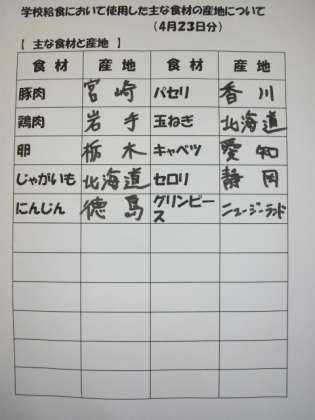 学校給食において使用した主な食材の産地について
（4月23日分）
【 主な食材と産地 】
食 材 産 地 食 材 産 地
豚肉 宮崎 パセリ 香川
鶏肉 岩手 玉ねぎ 北海道
卵 栃木 キャベツ 愛知
じゃがいも 北海道 セロリ 静岡
にんじん 徳島 グリンピース ニュージーランド